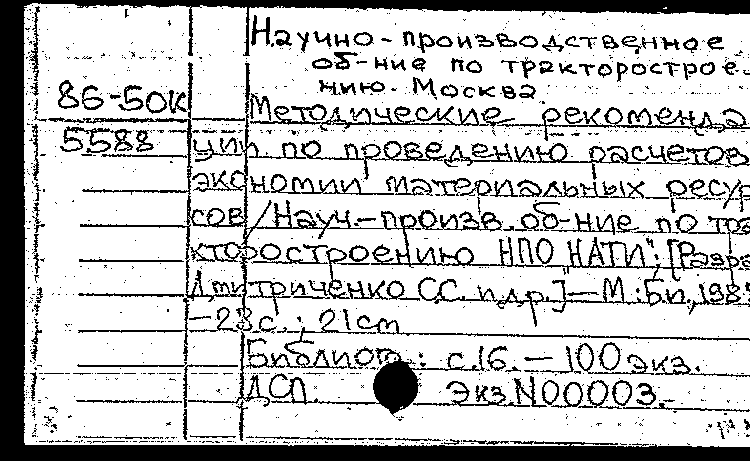 Научно-производственное
об-ние по тракторострое-
нию. Москва.
86-50К Методические рекоменда
5588 ции по проведению расчетов
экономии материальных ресур
сов/Науч.-произв. об-ние по тра
ктростроению НПО НАТИ"; [Разра
Дмитриченко С.С. и др.]"—М.: Би,
—23с.; 21см
Библиогр.: с.16.—100экз.
ДСП. Экз.N00003.-